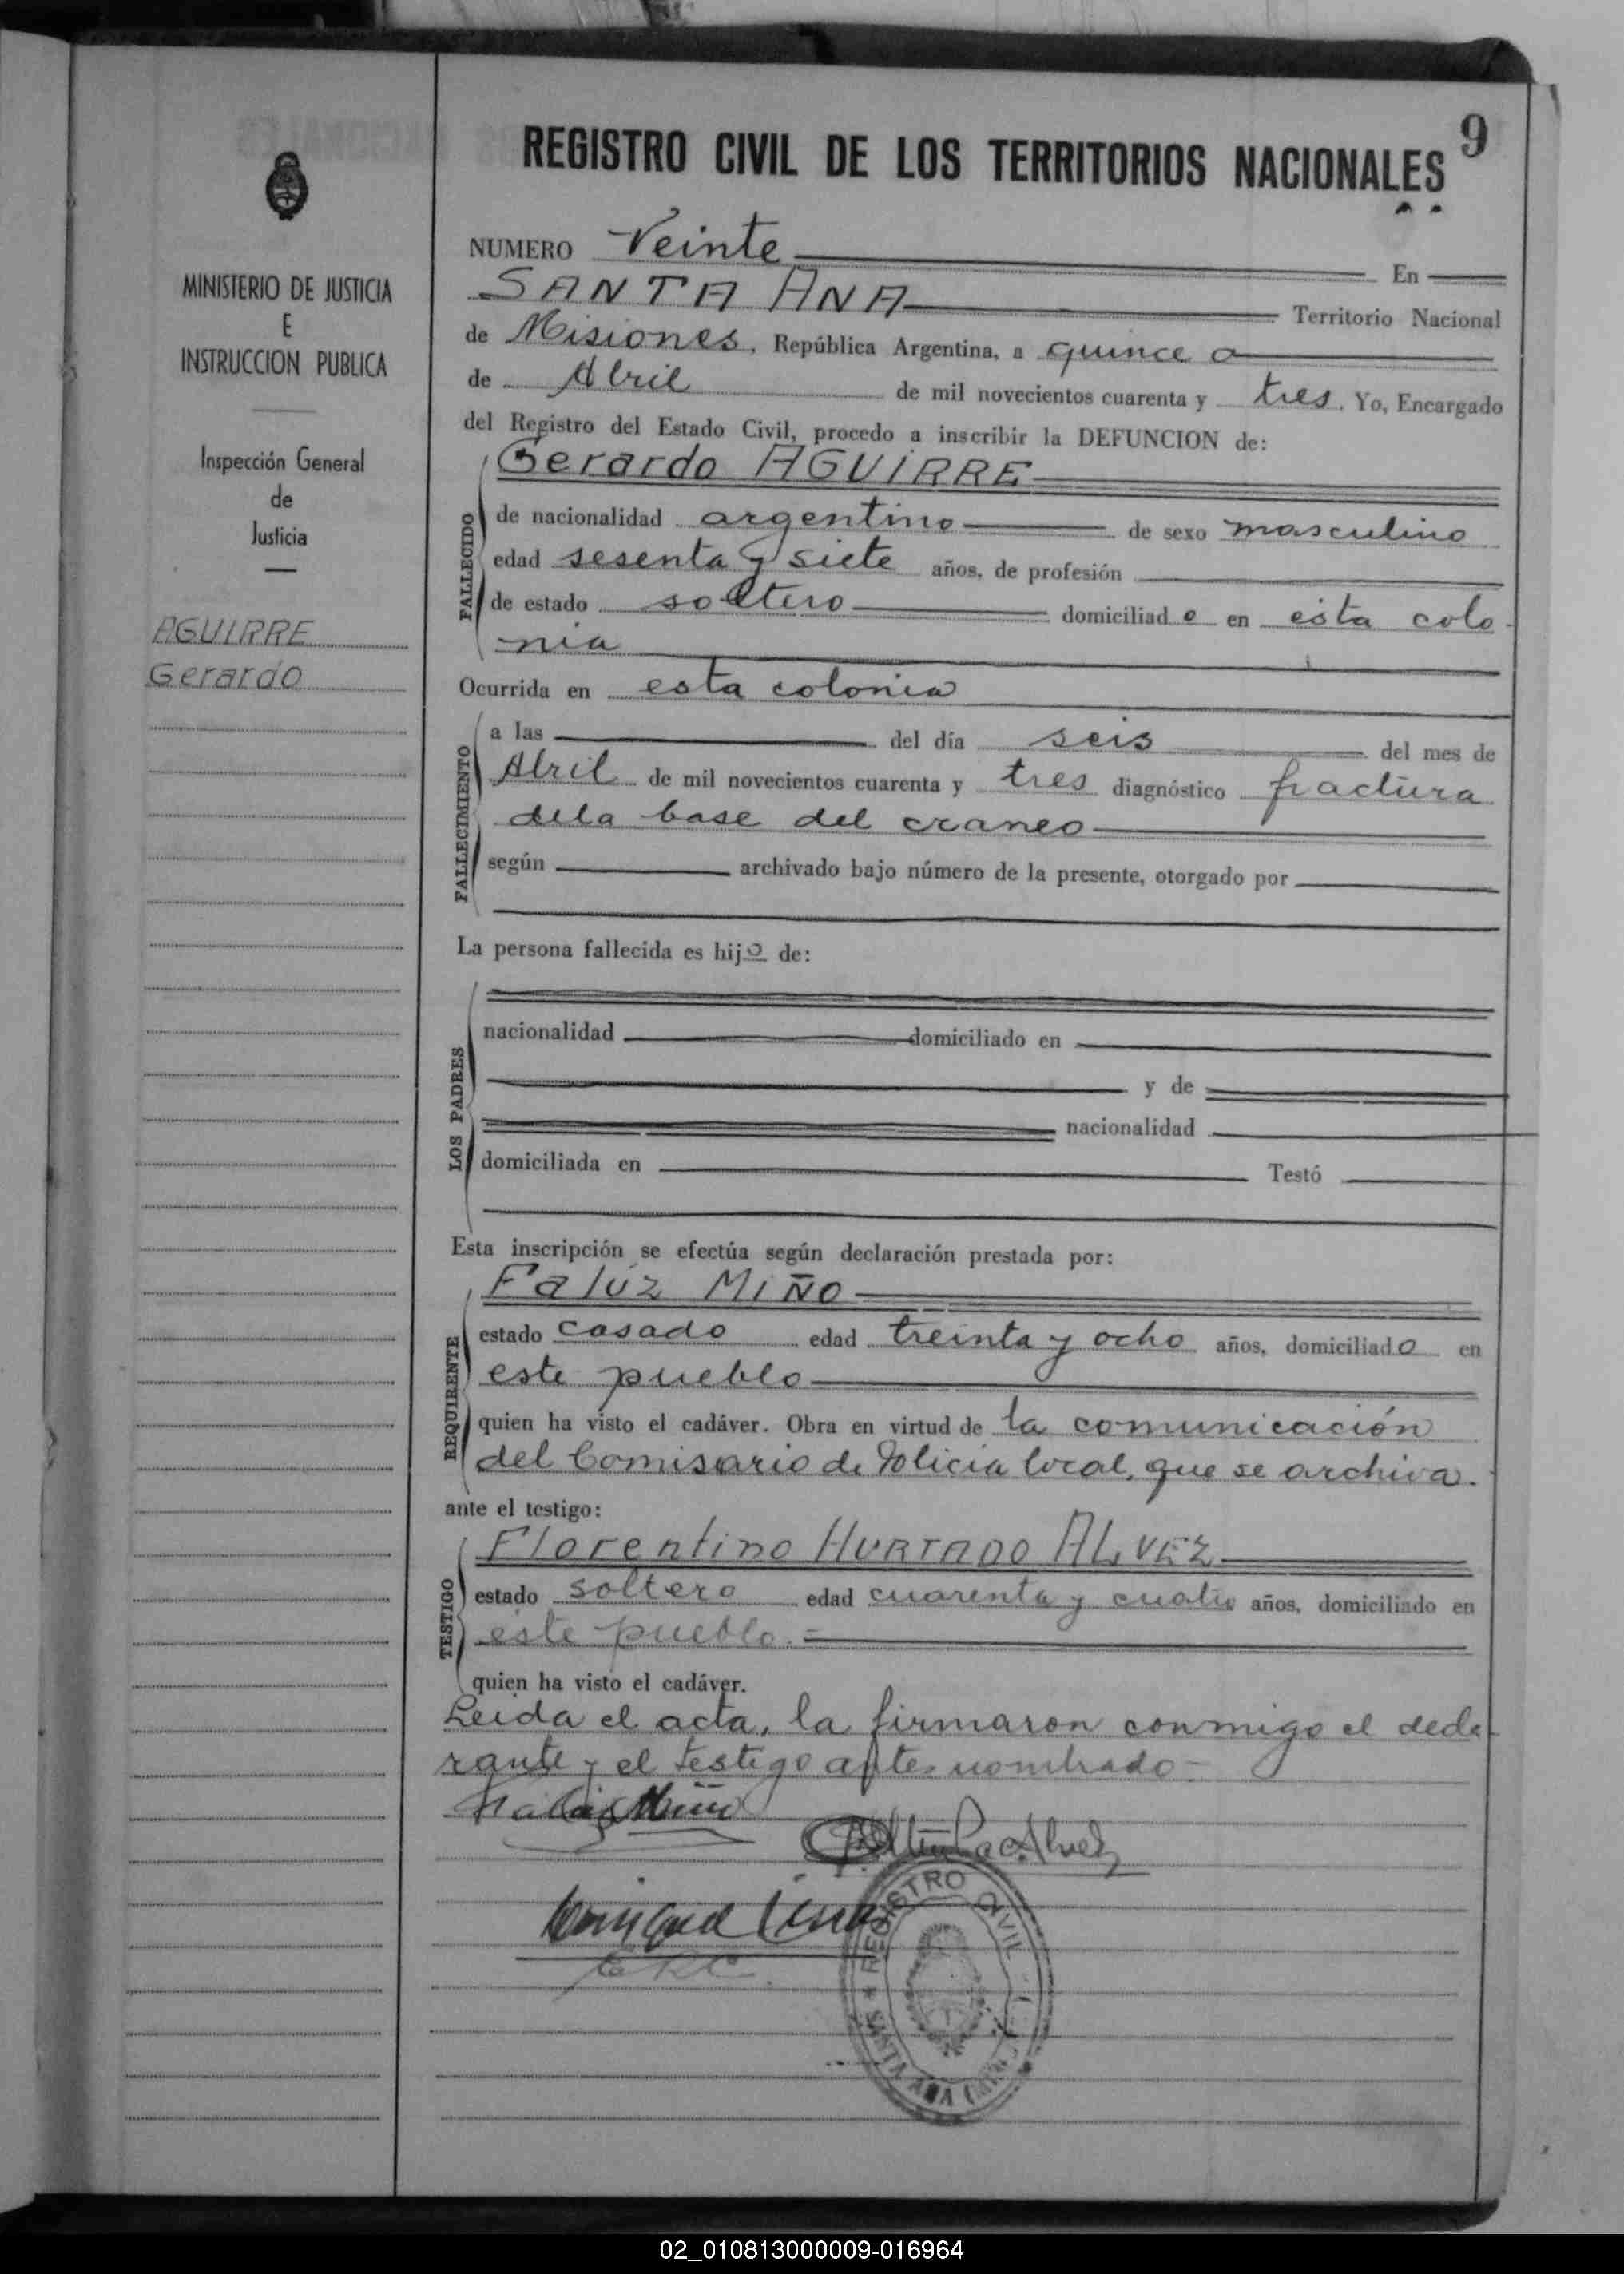 9
REGISTRO CIVIL DE LOS TERRITORIOS NACIONALES
MINISTERIO DE JUSTICIA
E
INSTRUCCION PUBLICA
Inspección General
de
Justicia
AGUIRRE
Gerardo
NUMERO Veinte En
SANTA ANA Territorio Nacional
de Misiones, República Argentina, a quince
de Abril de mil novecientos cuarenta y tres. Yo, Encargado
del Registro del Estado Civil, procedo a inscribir la DEFUNCION de:
Gerardo AGUIRRE
FALLECIDO
de nacionalidad argentino de sexo masculino
edad sesenta y siete años, de profesión
de estado soltero domiciliado en esta colo
nia
Ocurrida en esta colonia
FALLECIMIENTO
a las del día seis del mes de
Abril de mil novecientos cuarenta y tres diagnóstico fractura
dela base del craneo
según archivado bajo número de la presente, otorgado por
La persona fallecida es hijo de:
LOS PADRES
nacionalidad domiciliado en
y de
nacionalidad
domiciliada en Testó
Esta inscripción se efectúa según declaración prestada por:
Falúz MIÑO
REQUIRENTE
estado casado edad treinta y ocho años, domiciliado en
este pueblo
quien ha visto el cadáver. Obra en virtud de la comunicación
del Comisario de Policia local, que se archiva.
ante el testigo:
Florentino HURTADO ALVEZ
TESTIGO
estado soltero edad cuarenta y cuatro años, domiciliado en
este pueblo.=
quien ha visto el cadáver.
Leida el acta, la firmaron conmigo el decla
rante y el testigo antes nombrado-
Miño
Alvez
REGISTRO CIVIL
SANTA ANA
02_010813000009-016964